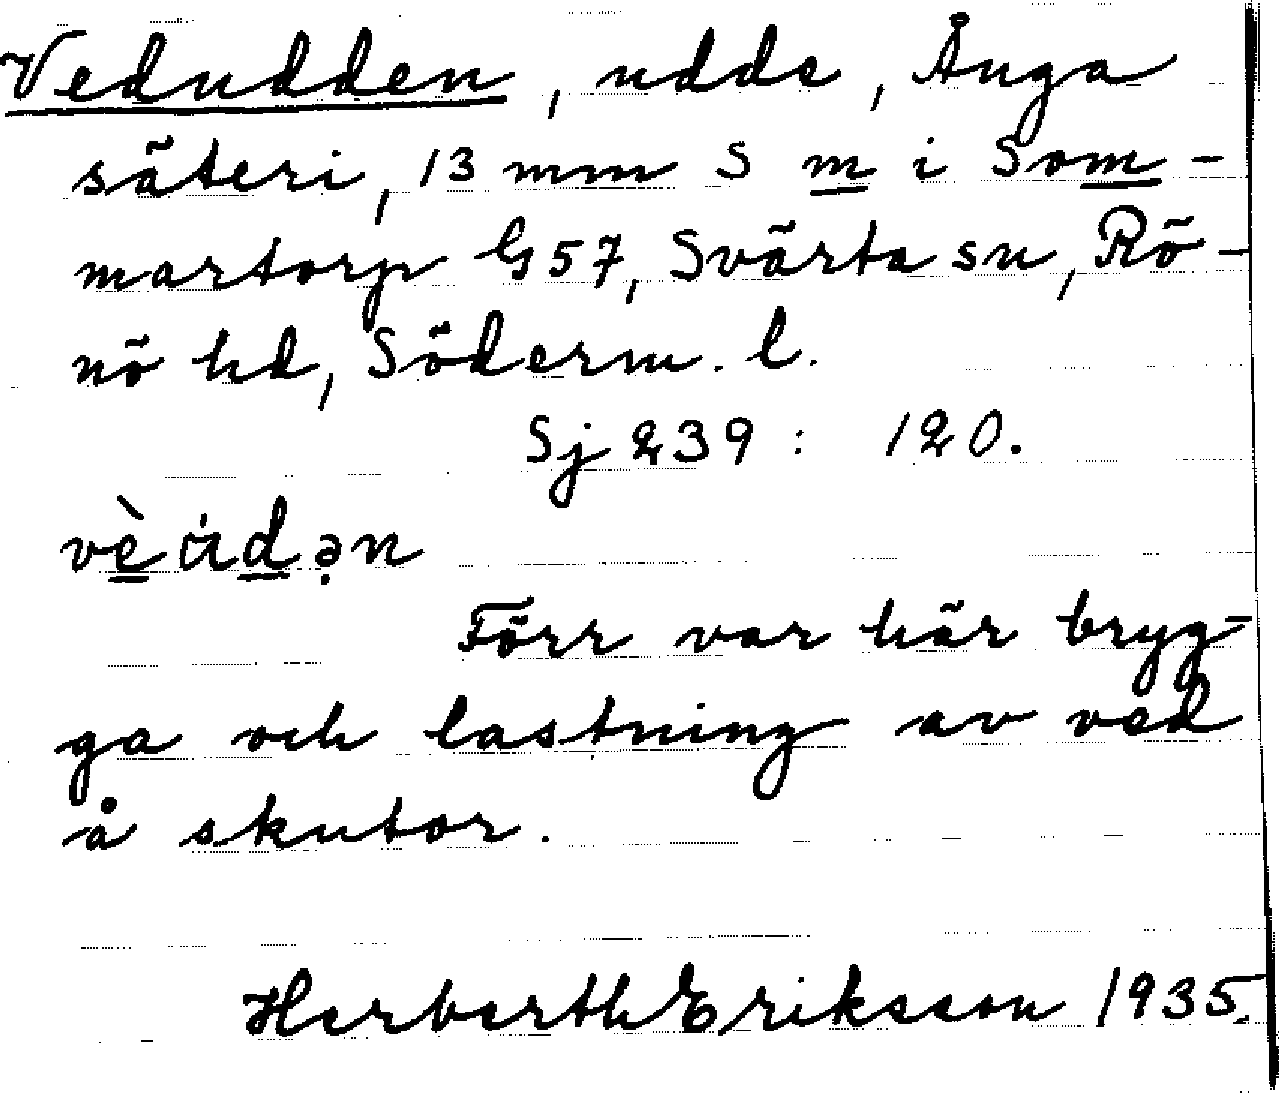 Vedudden, udde, Ånga
säteri, 13 mm S m i Som-
martorp G57, Svärta sn, Rö-
nö hd, Söderm. l.
Sj 239 : 120.
vè u̇dən
Förr var här bryg-
ga och lastning av ved
å skutor.
Herberth Eriksson 1935.